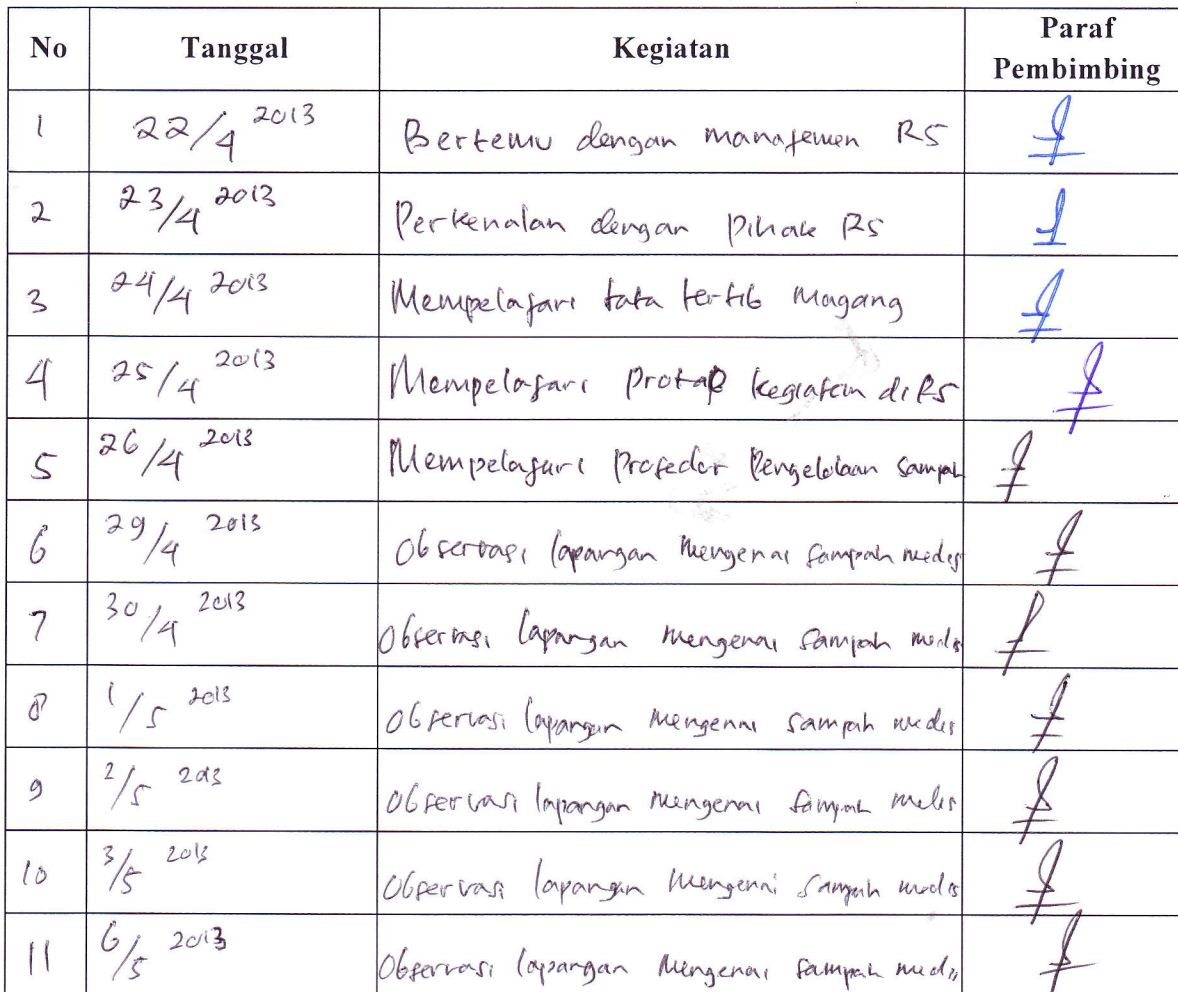 No Tanggal Kegiatan Paraf Pembimbing
1 22/4 2013 Bertemu dengan manajemen RS
2 23/4 2013 Perkenalan dengan pihak RS
3 24/4 2013 Mempelajari tata tertib magang
4 25/4 2013 Mempelajari protap kegiatan di RS
5 26/4 2013 Mempelajari Prosedur Pengelolaan sampah
6 29/4 2013 Observasi lapangan mengenai sampah medis
7 30/4 2013 Observasi lapangan mengenai sampah medis
8 1/5 2013 Observasi lapangan mengenai sampah medis
9 2/5 2013 Observasi lapangan mengenai sampah medis
10 3/5 2013 Observasi lapangan mengenai sampah medis
11 6/5 2013 Observasi lapangan mengenai sampah medis